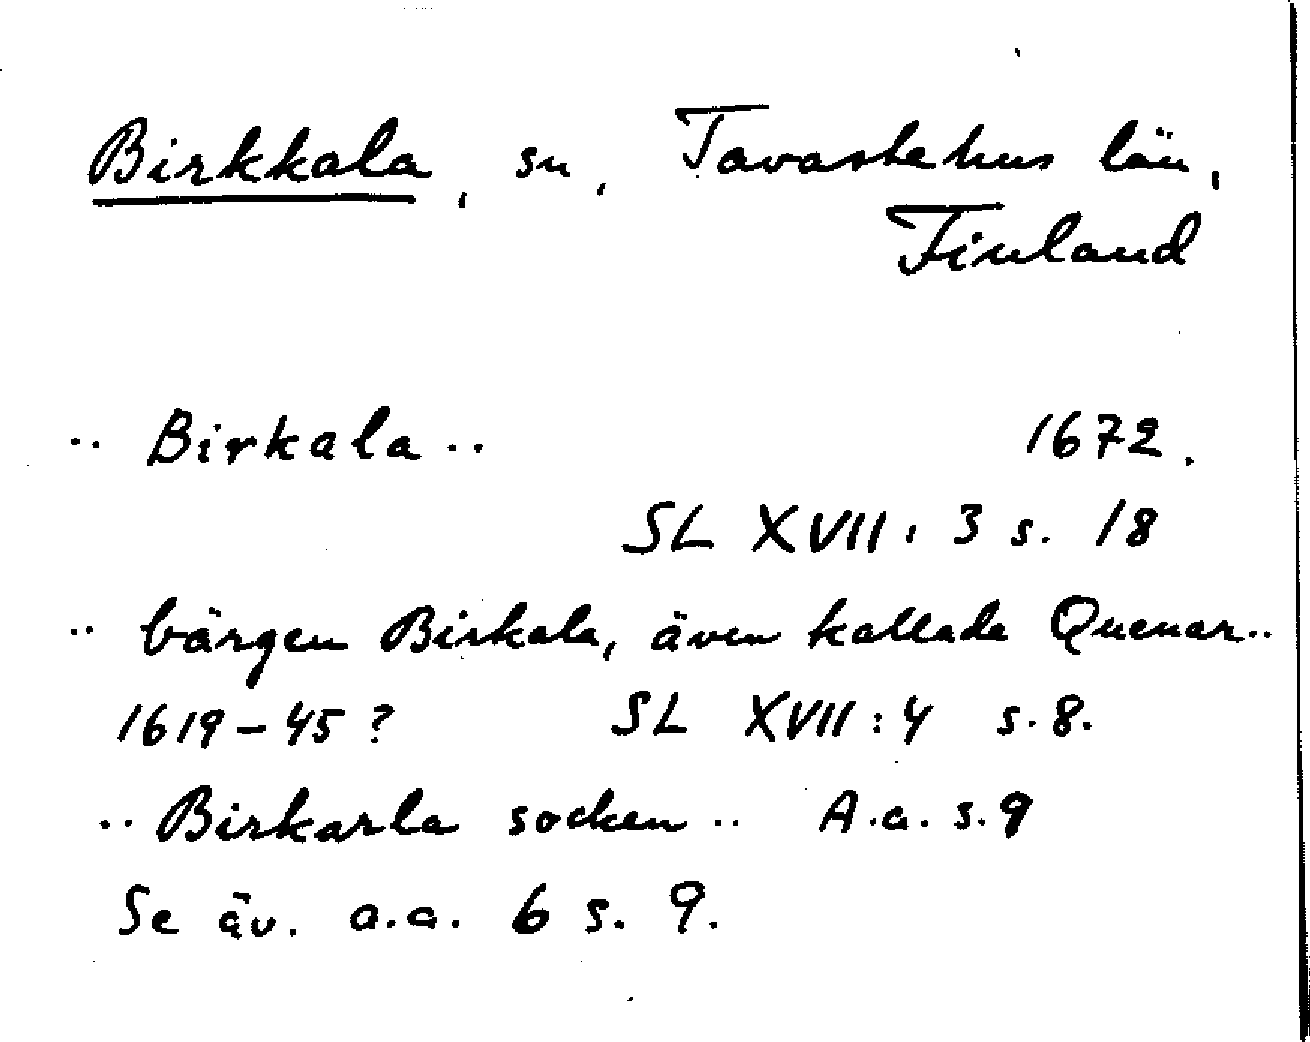 Birkkala, sn, Tavastehus län,
Finland
.. Birkala .. 1672.
SL XVII: 3 s. 18
.. bärgen Birkala, även kallade Quenar..
1619-45? SL XVII:4 s.8.
.. Birkarla socken .. A.a. s.9
Se äv. a.a. 6 s. 9.